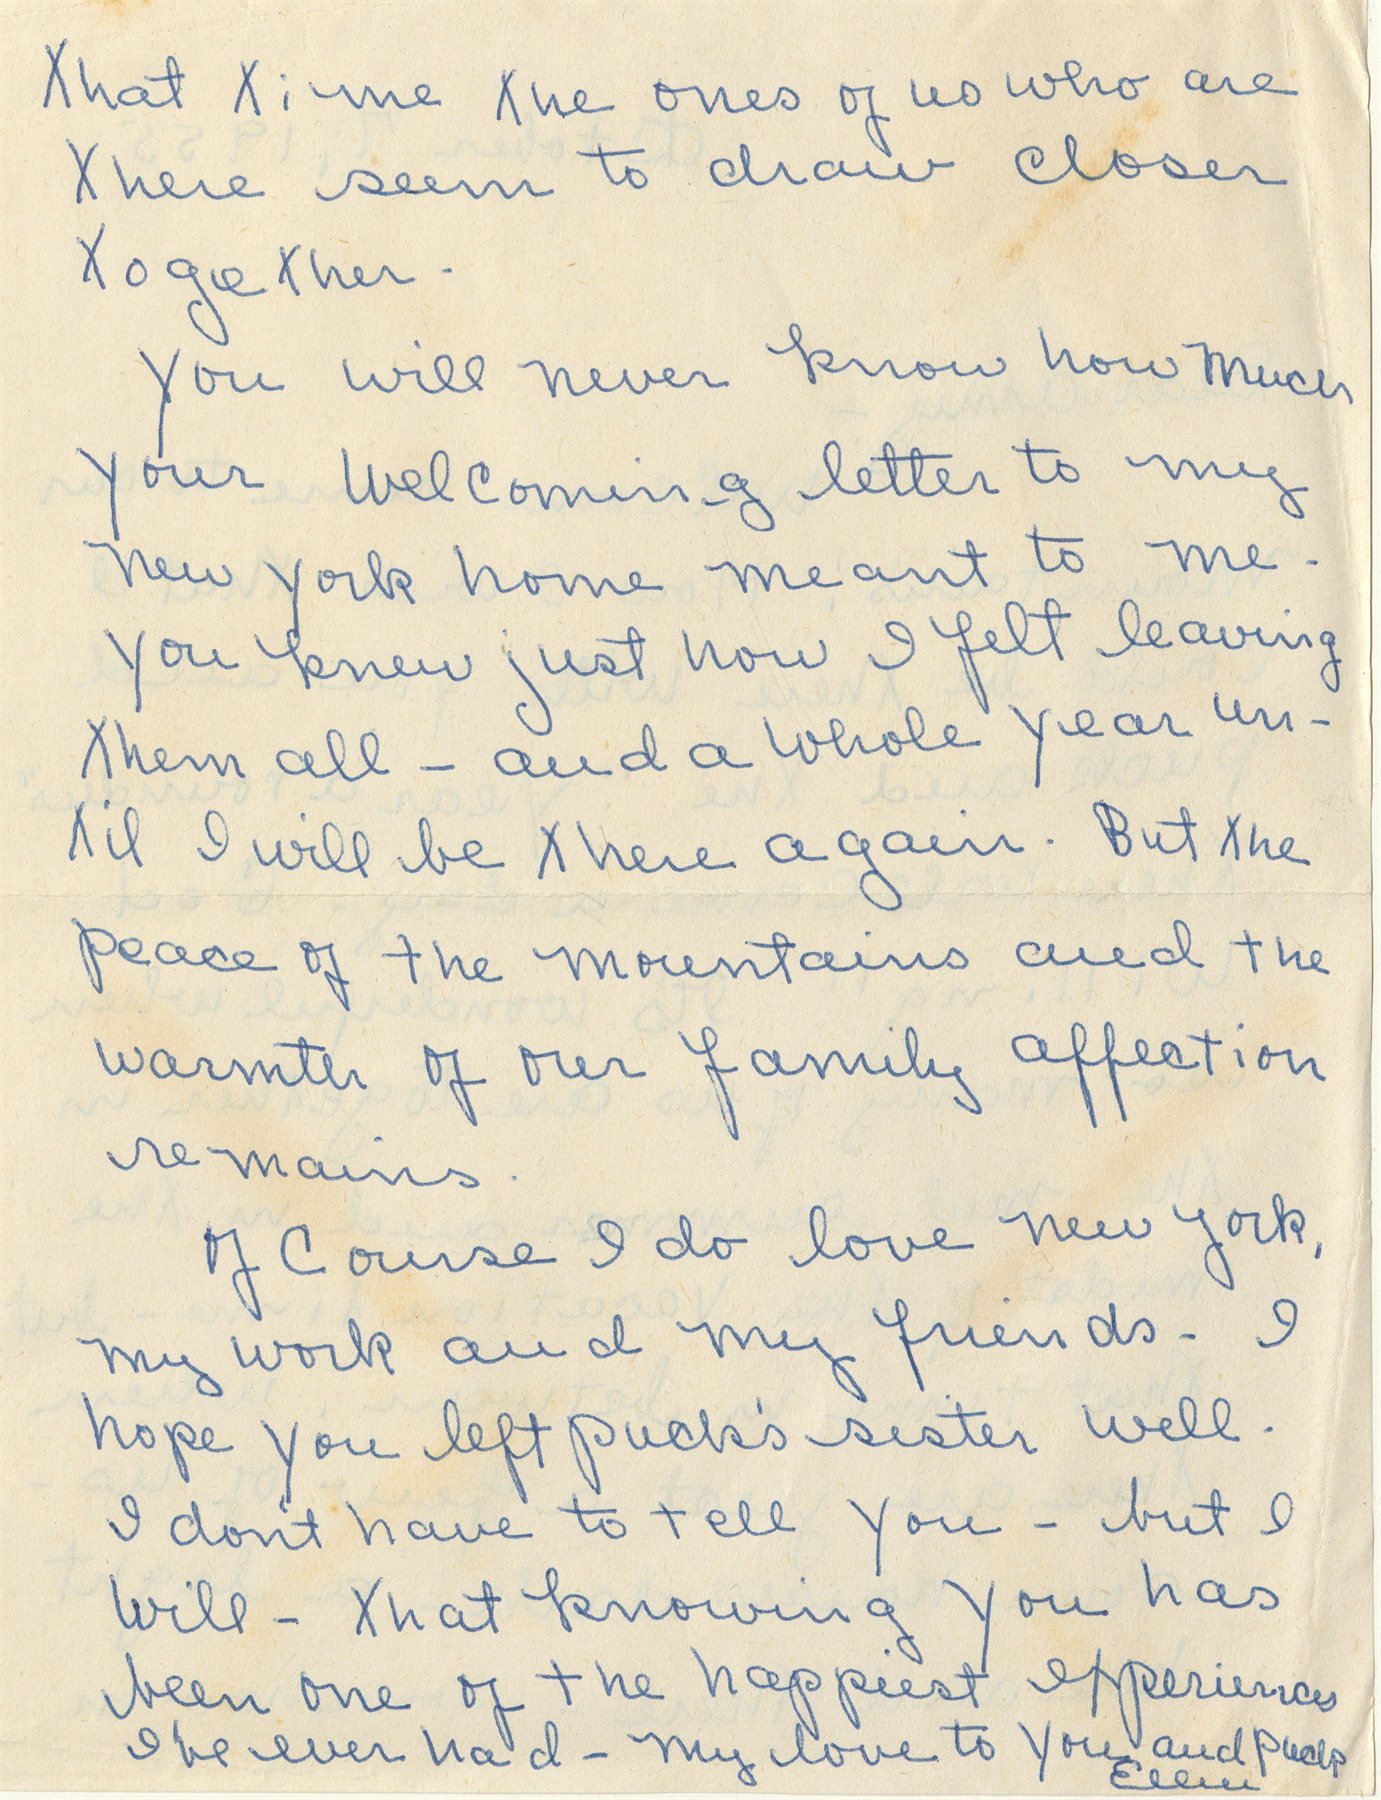 that time the ones of us who are
there seem to draw closer
together.
You will never know how much
your welcoming letter to my
New York home meant to me.
You knew just how I felt leaving
them all - and a whole year un-
til I will be there again. But the
peace of the mountains and the
warmth of our family affection
remains.
Of course I do love New York,
my work and my friends - I
hope you left Puck's sister well.
I don't have to tell you - but I
will - that knowing you has
been one of the happiest experiences
I've ever had - My love to you and Puck